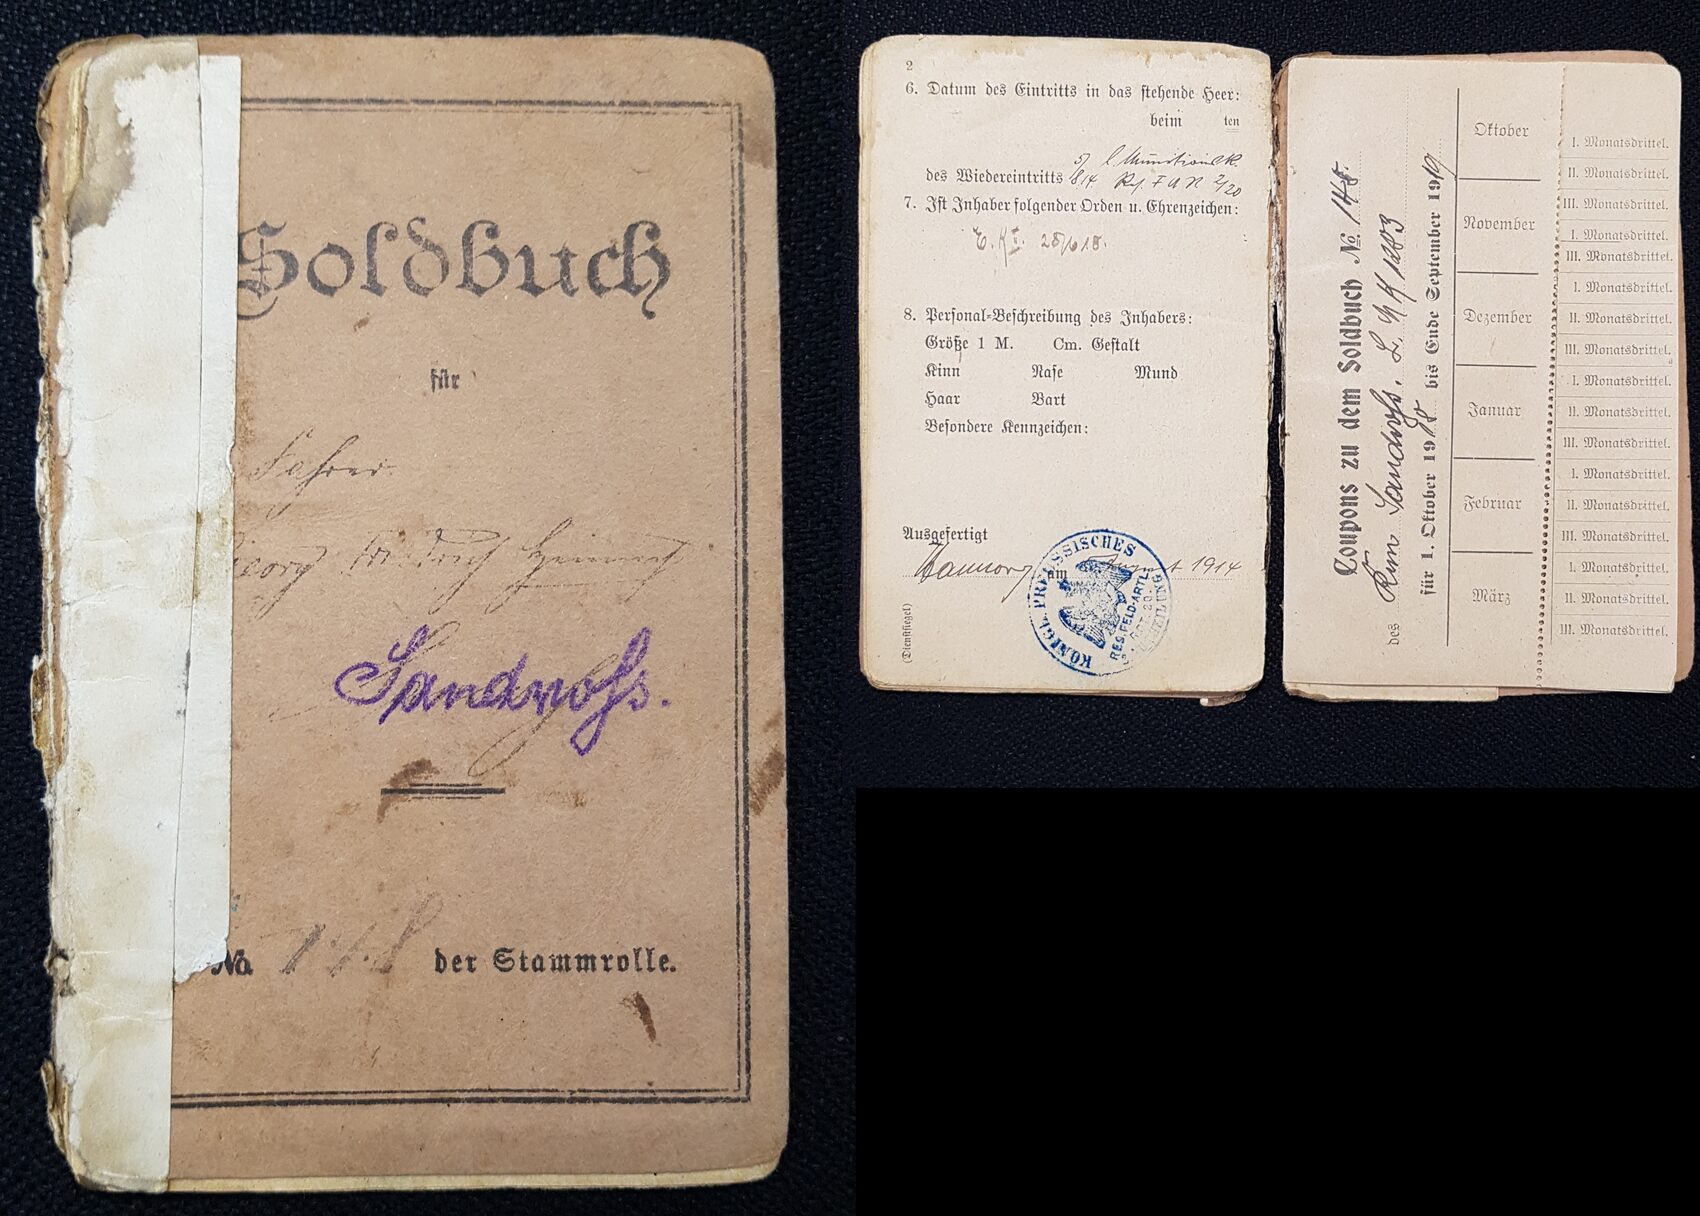 Soldbuch
für
Fahrer
Georg Friedrich Heinrich
Sandvoß.
No. 148 der Stammrolle.
2
6. Datum des Eintritts in das stehende Heer:
beim ten
5/ l Munitionsk.
des Wiedereintritts 8.14 Rs. F A R 2/20
7. Ist Inhaber folgender Orden u. Ehrenzeichen:
E. K II.
8. Personal-Beschreibung des Inhabers:
Größe 1 M. Cm. Gestalt
Kinn Nase Mund
Haar Bart
Besondere Kennzeichen:
Ausgefertigt
Hannover am August 1914
(Dienstsiegel)
KÖNIGL. PREUSSISCHES
RES. FELD-ARTL.
Coupons zu dem Soldbuch No. 148.
des Kan Sandvoß. L. M K 1283
für 1. Oktober 1918 bis Ende September 1919
Oktober
November
Dezember
Januar
Februar
März
I. Monatsdrittel.
II. Monatsdrittel.
III. Monatsdrittel.
I. Monatsdrittel.
III. Monatsdrittel.
I. Monatsdrittel.
II. Monatsdrittel.
III. Monatsdrittel.
I. Monatsdrittel.
II. Monatsdrittel.
III. Monatsdrittel.
I. Monatsdrittel.
II. Monatsdrittel.
III. Monatsdrittel.
I. Monatsdrittel.
II. Monatsdrittel.
III. Monatsdrittel.